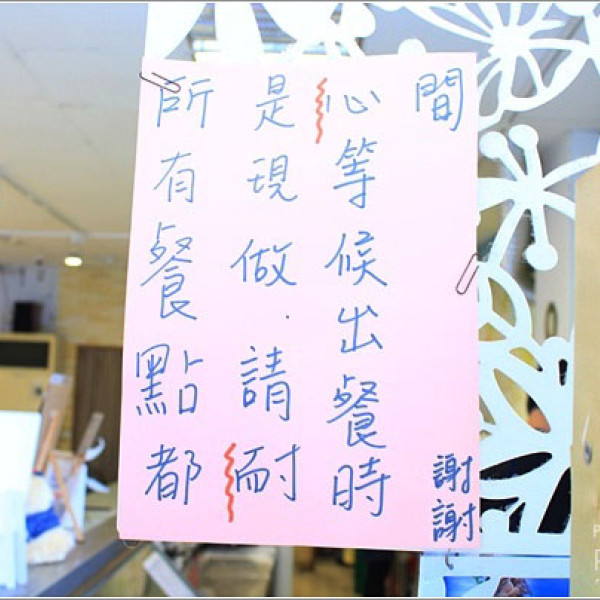 所有餐點都
是現做.請耐
心等候出餐時
間
謝謝